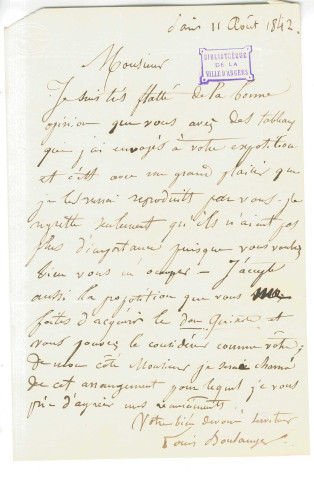 Paris 11 Août 1842.
BIBLIOTHÈQUE
DE LA
VILLE D'ANGERS
Monsieur
Je suis très flatté de la bonne
opinion que vous avez des tableaux
que j'ai envoyés à votre exposition
et c'est avec un grand plaisir que
je les verrai reproduits par vous. Je
regrette seulement qu'ils n'aient pas
plus d'importance puisque vous voulez
bien vous en occuper — J'accepte
aussi la proposition que vous me
faites d'acquérir le Don Quichotte et
vous pouvez le considérer comme vôtre;
de mon côté Monsieur je serai charmé
de cet arrangement pour lequel je vous
prie d'agréer mes remerciments.
Votre bien dévoué serviteur
Louis Boulanger.